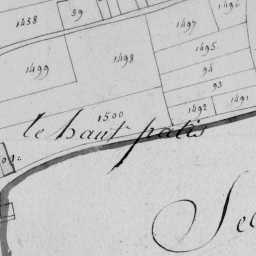 1438
39
1497
1496
1495
1499
1498
94
93
1500
1492
1491
le haut patis
Se